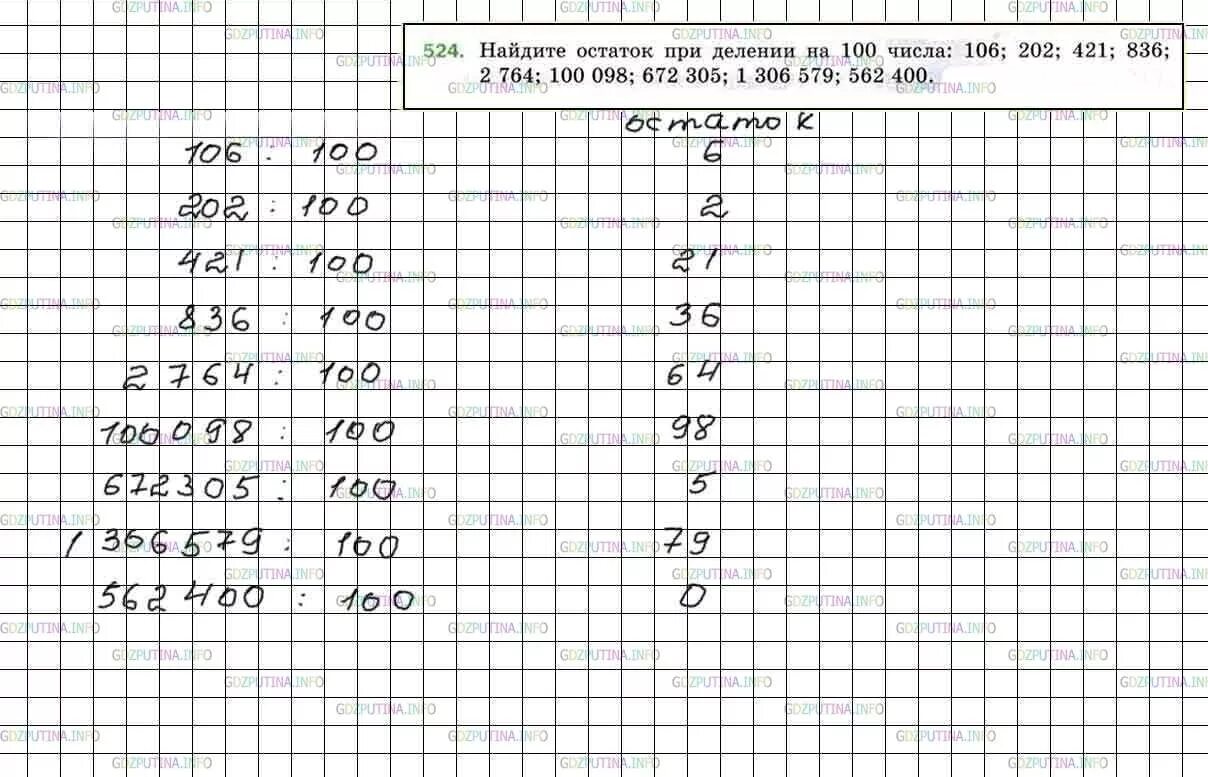 524. Найдите остаток при делении на 100 числа: 106; 202; 421; 836;
2 764; 100 098; 672 305; 1 306 579; 562 400.
остаток
106 : 100 6
202 : 100 2
421 : 100 21
836 : 100 36
2 764 : 100 64
100098 : 100 98
672305 : 100 5
1 306579 : 100 79
562 400 : 100 0
GDZPUTINA.INFO